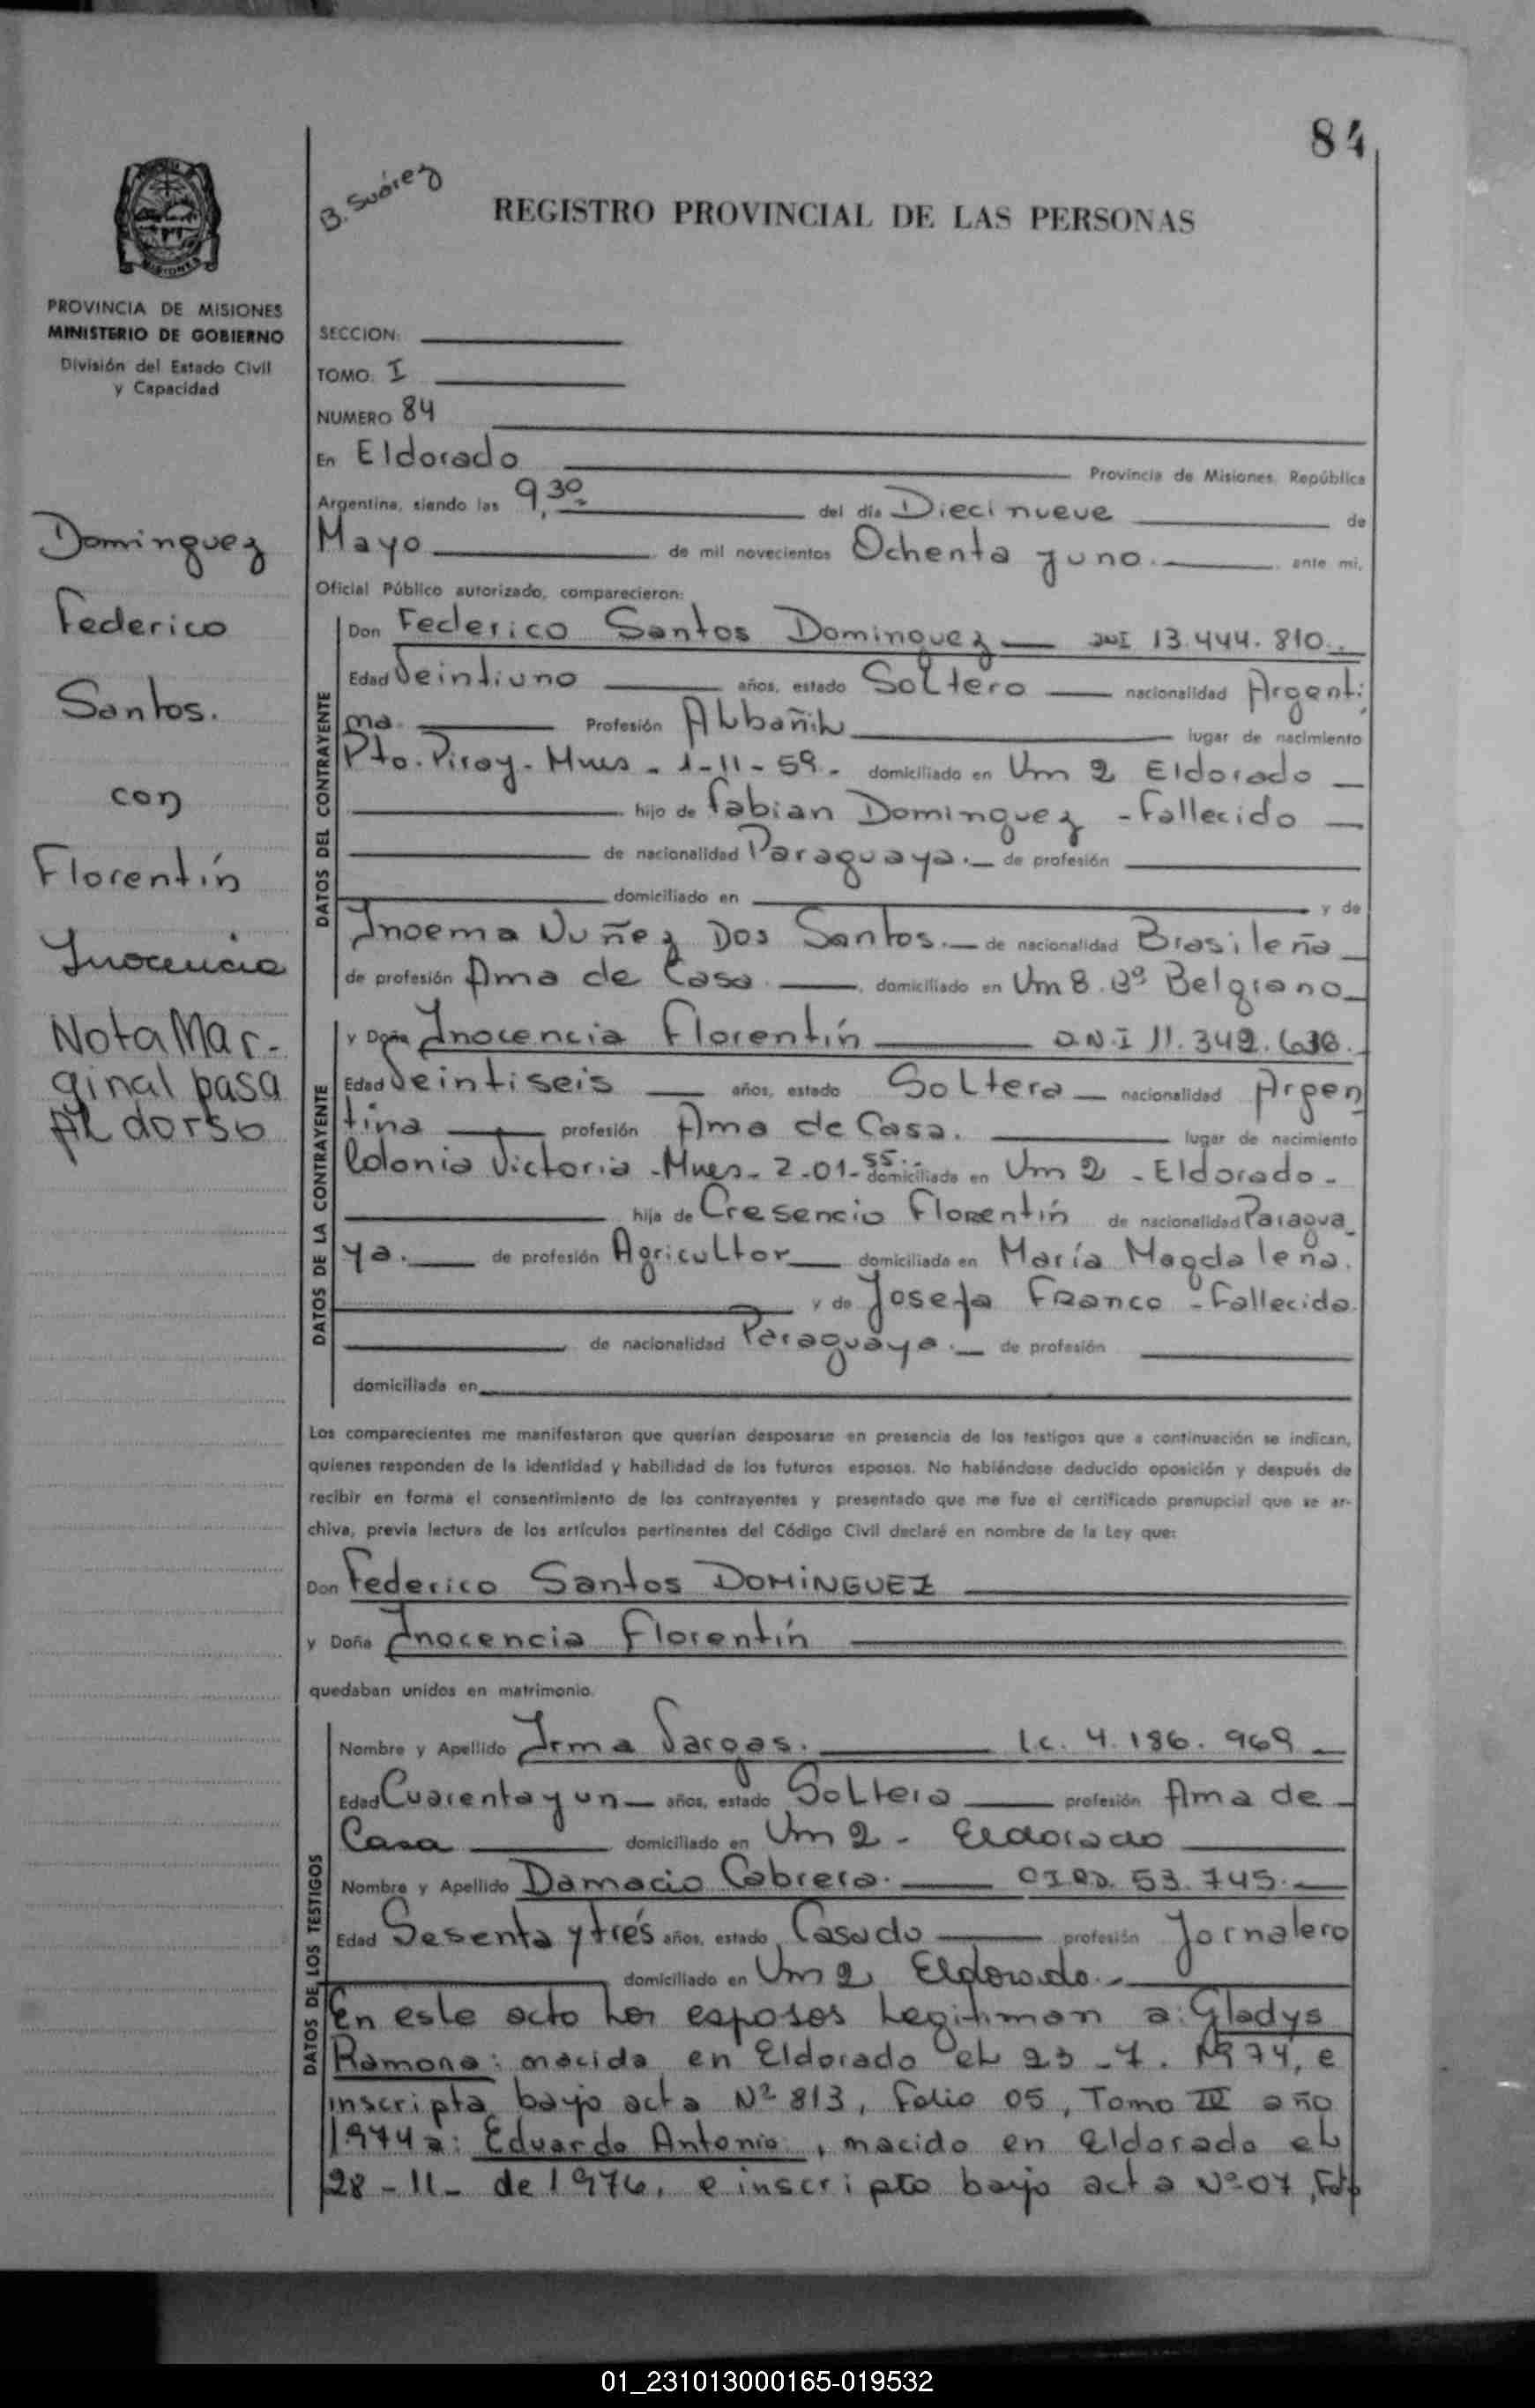 84
B. Suárez
REGISTRO PROVINCIAL DE LAS PERSONAS
MISIONES
PROVINCIA DE MISIONES
MINISTERIO DE GOBIERNO
División del Estado Civil
y Capacidad
SECCION:
TOMO: I
NUMERO 84
En Eldorado Provincia de Misiones, República
Argentina, siendo las 9,30 del día Diecinueve de
Mayo de mil novecientos Ochenta y uno. ante mi,
Oficial Público autorizado, comparecieron:
Dominguez
Federico
Santos.
con
Florentín
Inocencia
Nota Mar-
ginal pasa
AL dorso
DATOS DEL CONTRAYENTE
Don Federico Santos Dominguez DNI 13.444.810.
Edad Veintiuno años, estado Soltero nacionalidad Argenti
na. Profesión Albañil lugar de nacimiento
Pto. Piray - Mnes - 1-11-59. domiciliado en Km 2 Eldorado
hijo de Fabian Dominguez - Fallecido
de nacionalidad Paraguaya. de profesión
domiciliado en y de
Inoema Nuñez Dos Santos. de nacionalidad Brasileña
de profesión Ama de Casa. domiciliado en Km 8. Bº Belgrano
DATOS DE LA CONTRAYENTE
y Doña Inocencia Florentín D.N.I 11.349.636.
Edad Veintiseis años, estado Soltera nacionalidad Argen
tina profesión Ama de Casa. lugar de nacimiento
Colonia Victoria - Mnes - 2-01-55.. domiciliada en Km 2 - Eldorado.
hija de Cresencio Florentín de nacionalidad Paragua
ya. de profesión Agricultor domiciliado en María Magdalena.
y de Josefa Franco - Fallecida.
de nacionalidad Paraguaya. de profesión
domiciliada en
Los comparecientes me manifestaron que querían desposarse en presencia de los testigos que a continuación se indican,
quienes responden de la identidad y habilidad de los futuros esposos. No habiéndose deducido oposición y después de
recibir en forma el consentimiento de los contrayentes y presentado que me fue el certificado prenupcial que se ar-
chiva, previa lectura de los artículos pertinentes del Código Civil declaré en nombre de la Ley que:
Don Federico Santos DOMINGUEZ
y Doña Inocencia Florentín
quedaban unidos en matrimonio.
DATOS DE LOS TESTIGOS
Nombre y Apellido Irma Vargas. Lc. 4.186.969
Edad Cuarenta y un años, estado Soltera profesión Ama de
Casa domiciliado en Km 2 - Eldorado
Nombre y Apellido Damacio Cabrera. 53.745.
Edad Sesenta y trés años, estado Casado profesión Jornalero
domiciliado en Km 2 Eldorado.
En este acto los esposos Legitiman a: Gladys
Ramona: nacida en Eldorado el 23-7. 1974, e
inscripta bajo acta Nº 813, Folio 05, Tomo IV año
1974 a: Eduardo Antonio, nacido en Eldorado el
28-11- de 1976, e inscripto bajo acta Nº 07,
01_231013000165-019532